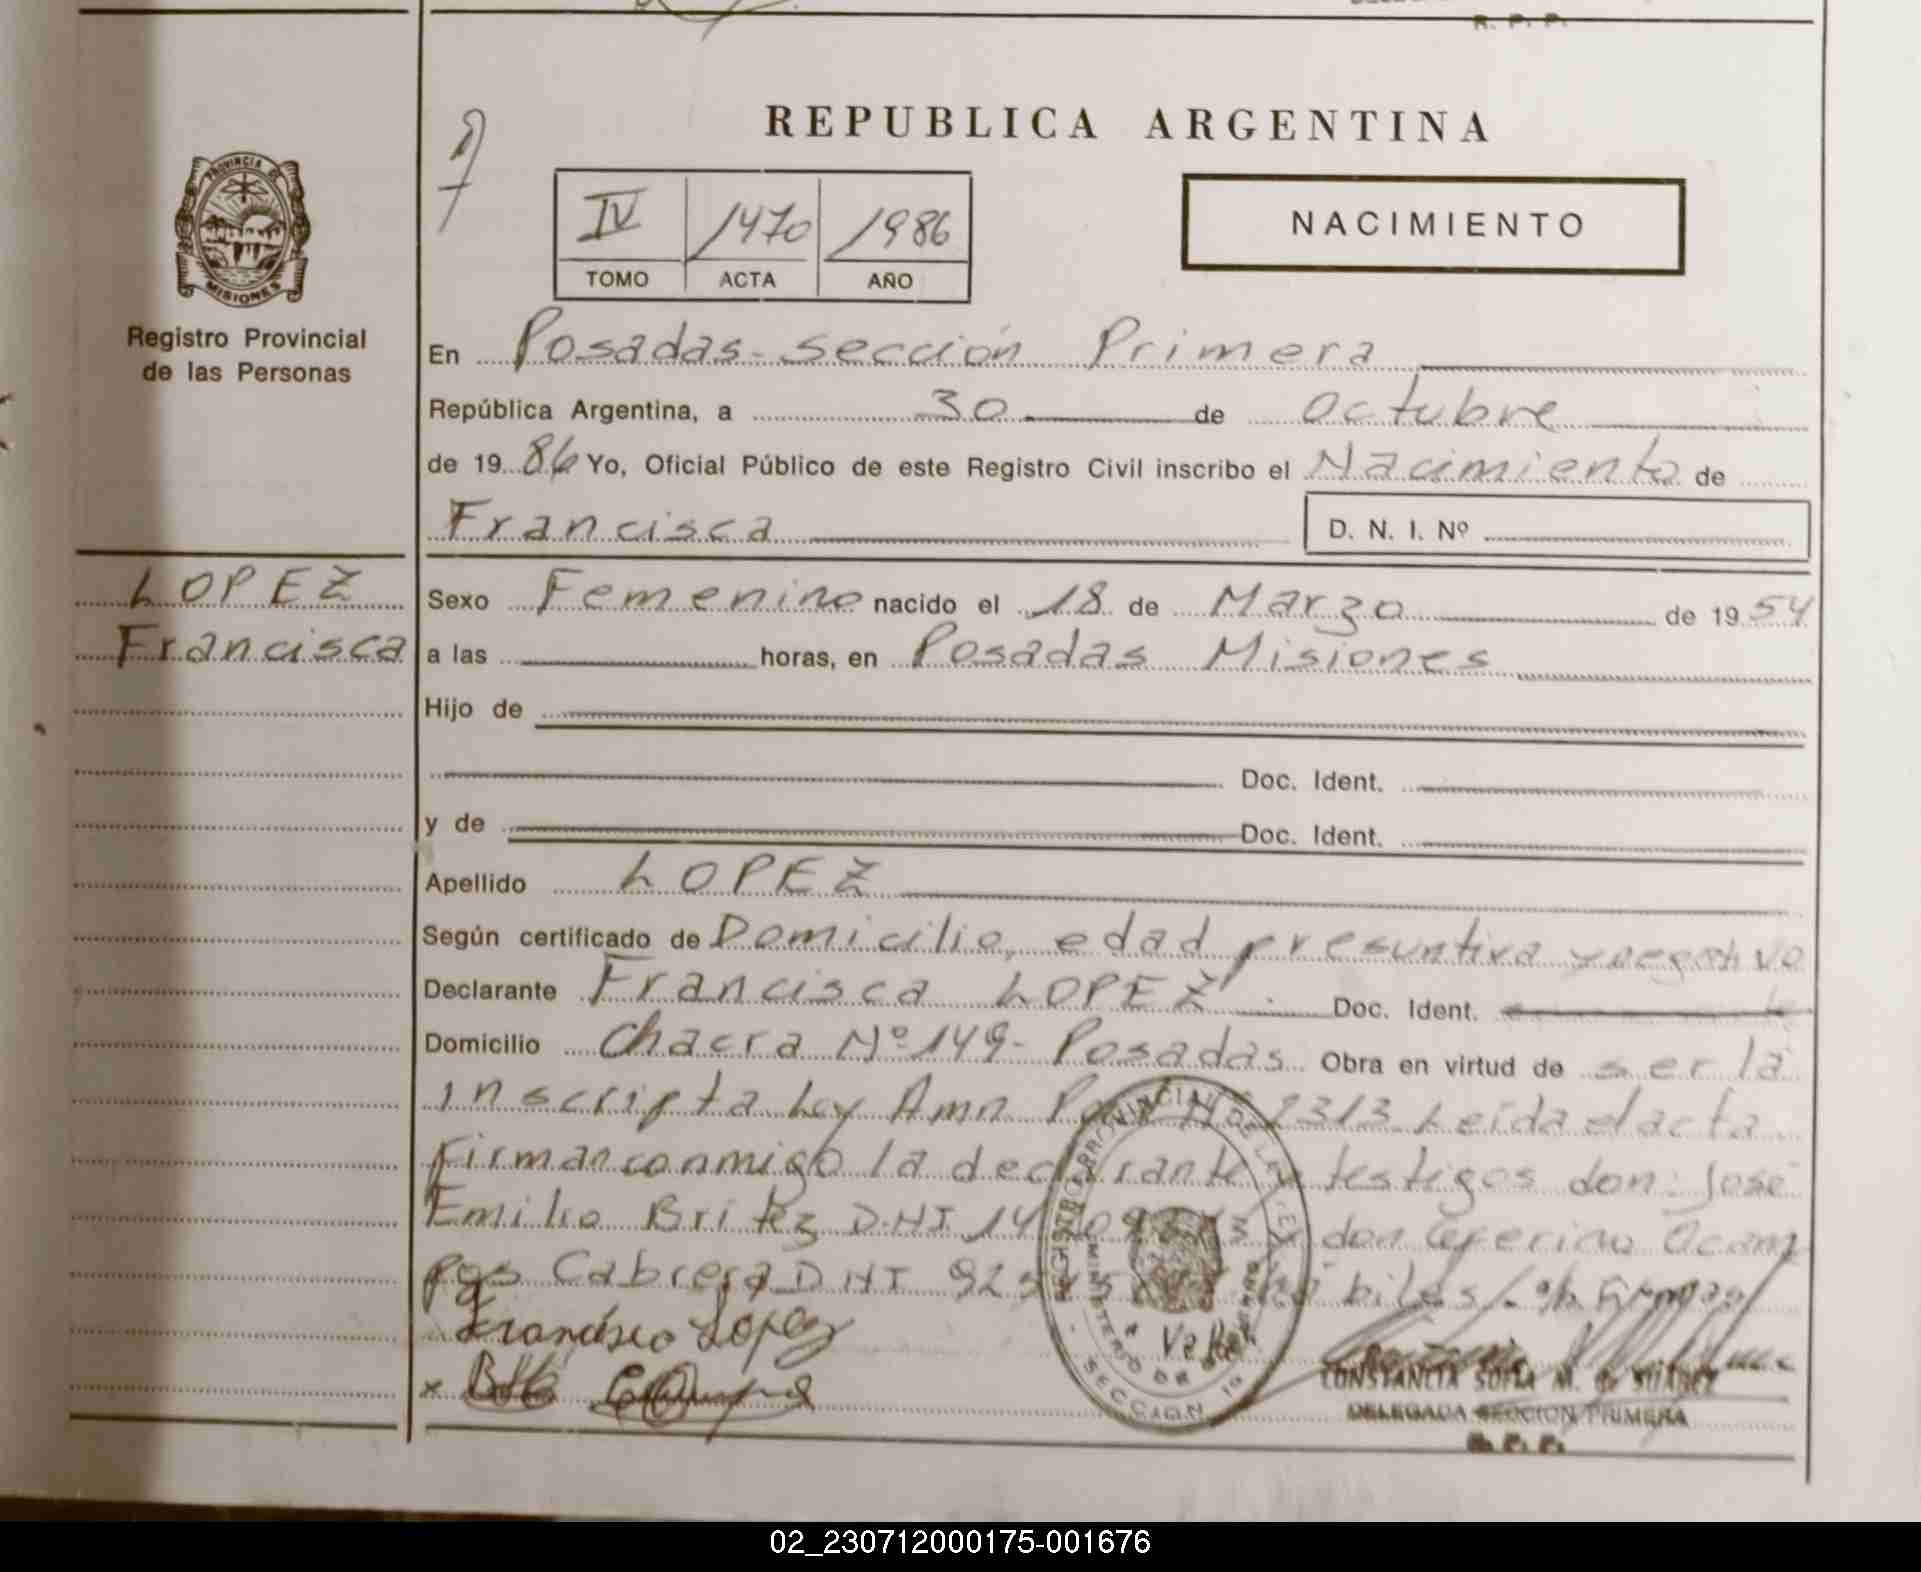 R. P. P.
REPUBLICA ARGENTINA
PROVINCIA DE
MISIONES
IV 1470 1986
TOMO ACTA AÑO
NACIMIENTO
Registro Provincial
de las Personas
En Posadas - Sección Primera
República Argentina, a 30 de Octubre
de 19 86 Yo, Oficial Público de este Registro Civil inscribo el Nacimiento de
Francisca D. N. I. Nº
LOPEZ
Francisca
Sexo Femenino nacido el 18 de Marzo de 19 54
a las horas, en Posadas Misiones
Hijo de
Doc. Ident.
y de Doc. Ident.
Apellido LOPEZ
Según certificado de Domicilio, edad presuntiva y negativo
Declarante Francisca LOPEZ Doc. Ident.
Domicilio Chacra Nº 149- Posadas Obra en virtud de ser la
inscripta Ley Amn 2313 Leida el acta
Firman conmigo la declarante y testigos don: José
Emilio Britez D.N.I. 14 don Ceferino Ocam
pos Cabrera D.N.I. 92 habiles
Francisca Lopez
REGISTRO PROVINCIAL DE LAS PERSONAS
MINISTERIO DE GOBIERNO
SECCION 1a
CONSTANCIA SOFIA M. de SUAREZ
DELEGADA SECCION PRIMERA
R. P. P.
02_230712000175-001676